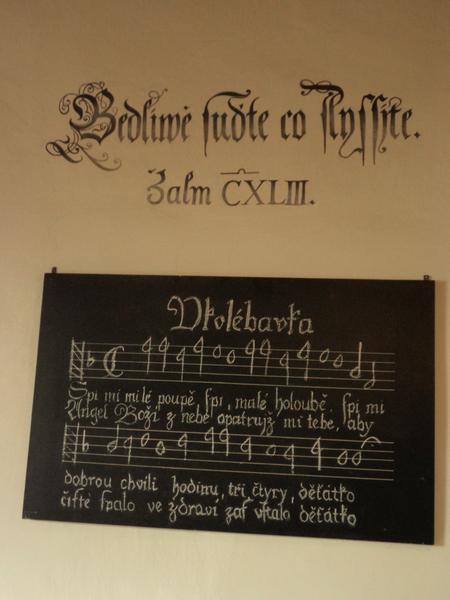 Bedliwě suďte co slyssíte.
Žalm CXLIII.
Vkolébavka
Spi mi milé poupě, spi, malé holoubě. spi mi
Angel Boží z nebe opatrujž mi tebe, aby
dobrou chvíli hodinu, tři čtyry, děťátko
čisté spalo ve zdraví zas vstalo děťátko